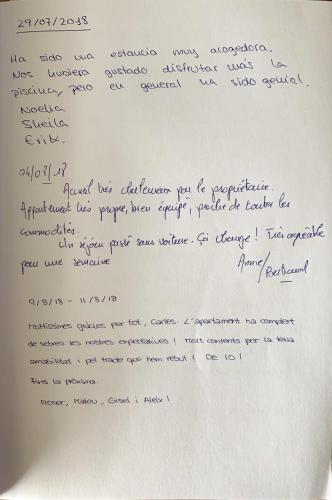 29/07/2018
Ha sido una estancia muy acogedora.
Nos hubiera gustado disfrutar más la
piscina, pero en general ha sido genial.
Noelia
Sheila
Erik.
04/08/18
Accueil très chaleureux par le propriétaire.
Appartement très propre, bien équipé, proche de toutes les
commodités.
Un séjour passé sans voiture. Ça change ! Très agréable
pour une semaine
Annie/
Bertrand
9/8/18 - 11/8/18
Moltissimes gràcies per tot, Carles. L'apartament ha complert
de sobres les nostres expectatives! Molt contents per la teva
amabilitat i pel tracte que hem rebut! DE 10!
Fins la pròxima.
Roser, Mateu, Gisel i Aleix!